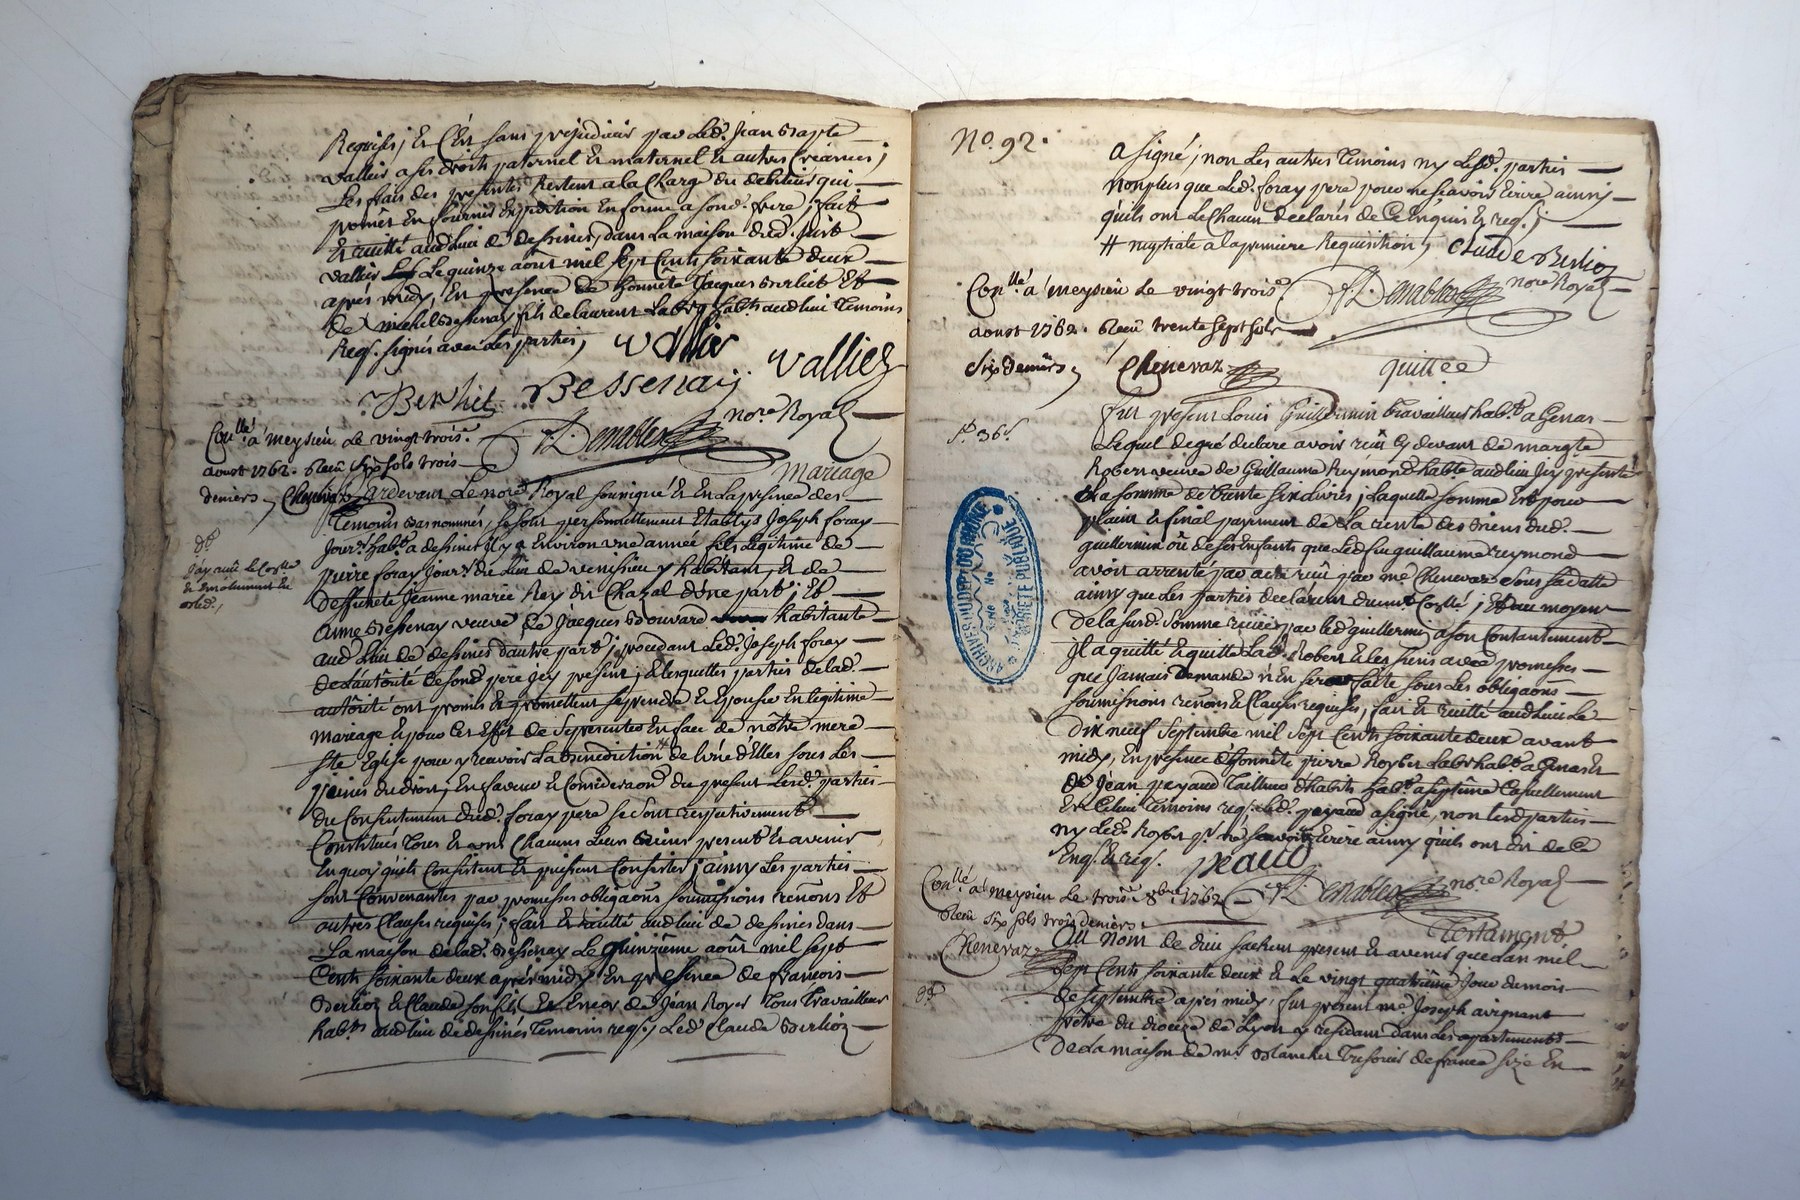 Requises, Et C'est sans prejudicier par Led. Jean Bapte
vallier a ses droits paternel Et maternel Et autres Creances;
Les frais des presentes Restent a la Charge du debiteur qui
promet En fournir Expedition En forme a sond. frere; fait
Et recitté aud. Lieu de dessines, dans La maison dud. just
vallier Le quinze août mil sept Cents soixante deux
après midy, En presence de honnête Jacques Et
de michel Bessenay fils de laurent Labrs habts aud. lieu temoins
Reqs. signés avec Les parties, vallier valliez
Berlhiet Bessenay
nore Royal
Conllé a meysieu Le vingt trois
aoust 1762. Reçu six sols trois
deniers, Chenevaz
Demables
mariage
Pardevant Le nore Royal soussigné Et En La presence des
temoins bas nommés, se sont personnellement Etablys Joseph foray
Jourr habt a dessines il y a Environ une année fils Legitime de
pierre foray Jourr du Lieu de venissieu y habitant, Et de
deffuncte Jeanne marie Rey du Chazal d'une part; Et
Anne Bessenay veuve de Jacques Bouvard habitante
aud. Lieu de dessines d'autre part; procedant Led. Joseph foray
de L'autorité de sond. pere jcy present; Lesquelles parties de lad.
autorité ont promis Et promettent se prendre Et Epouser En legitime
mariage Et pour Cet Effet de se presenter En face de nôtre mere
Ste Eglise pour y recevoir La benediction # de L'une d'Elles sous Les
peines du droit; En faveur Et Consideraon du present Lesd. parties
du Consentement dud. foray pere se sont respectivement
Constitués tous Et uns Chacuns Leurs Biens present Et avenir
En quoy qu'ils Consistent Et puissent Consister; ainsy Les parties
sont Convenantes par promesses obligaons soumissions renons Et
autres Clauses requises; fait Et recitté aud. lieu de dessines dans
La maison de lad. Bessenay Le quinzième août mil sept
Cents soixante deux après midy En presence de francois
Berlioz Et Claude son fils Et Encor de Jean Royer tous travailleurs
habts aud. lieu de dessines temoins reqs, Led. Claude Berlioz
No. 92.
a signé, non Les autres temoins ny Lesd. parties
non plus que Led. foray pere pour ne sçavoir Ecrire ainsy
qu'ils ont Le Chacun declarés de Ce Enquis Et reqs.
# nuptiale a la premiere Requisition, Claude Berlioz
Conllé a meysieu Le vingt trois
Demables nore Royal
aoust 1762. Reçu trente sept sols
six deniers, Chenevaz
quittce
fut present Louis Guillermin travailleur habt a Genas
p. 36#
Lequel de gré declare avoir reçu Cy devant de margte
Robert veuve de Guillaume Reymond habte aud. lieu Jcy presente
La somme de trente six Livres; Laquelle somme Est pour
plain Et final payement de La rente des Biens dud.
guillermin où de ses Enfants que Led. feu guillaume reymond
avoit arrenté par acte reçu par me Chenevaz sous sa datte
ainsy que Les parties declarent duement Conllé; Et au moyen
de La surd. somme reçue par led. guillermin a son Contantement
Jl a quitté Et quitte Lad. Robert Et les siens avec promesses
que Jamais demande n'En sera faite sous Les obligaons
soumissions renons Et Clauses requises; fait Et recitté aud. lieu Le
dix neuf septembre mil sept Cents soixante deux avant
midy, En presence d'honnête pierre Roybet Labr habt a Genas Et
de Jean peyaud Tailleur d'habits habt a septême Casuellement
En Ce lieu temoins reqs; Led. peyaud a signé, non Lesd. parties
ny Led. Royber pr ne sçavoir Ecrire ainsy qu'ils ont dit de Ce
Enqs. Et reqs. peaud
Conllé a meysieu Le trois 8bre 1762
Demables nore Royal
Reçu six sols trois deniers
Chenevaz
Testament
Au nom de dieu sachent present Et avenir que L'an mil
sept Cents soixante deux Et Le vingt quatrième Jour du mois
de septembre après midy, fut present me Joseph avignant
prêtre du dioceze de Lyon y residant dans Les apartements
de La maison de mr Blanchet Tresorier de france size En
ARCHIVES DU DEPT DU RHONE
PROPRIETE PUBLIQUE